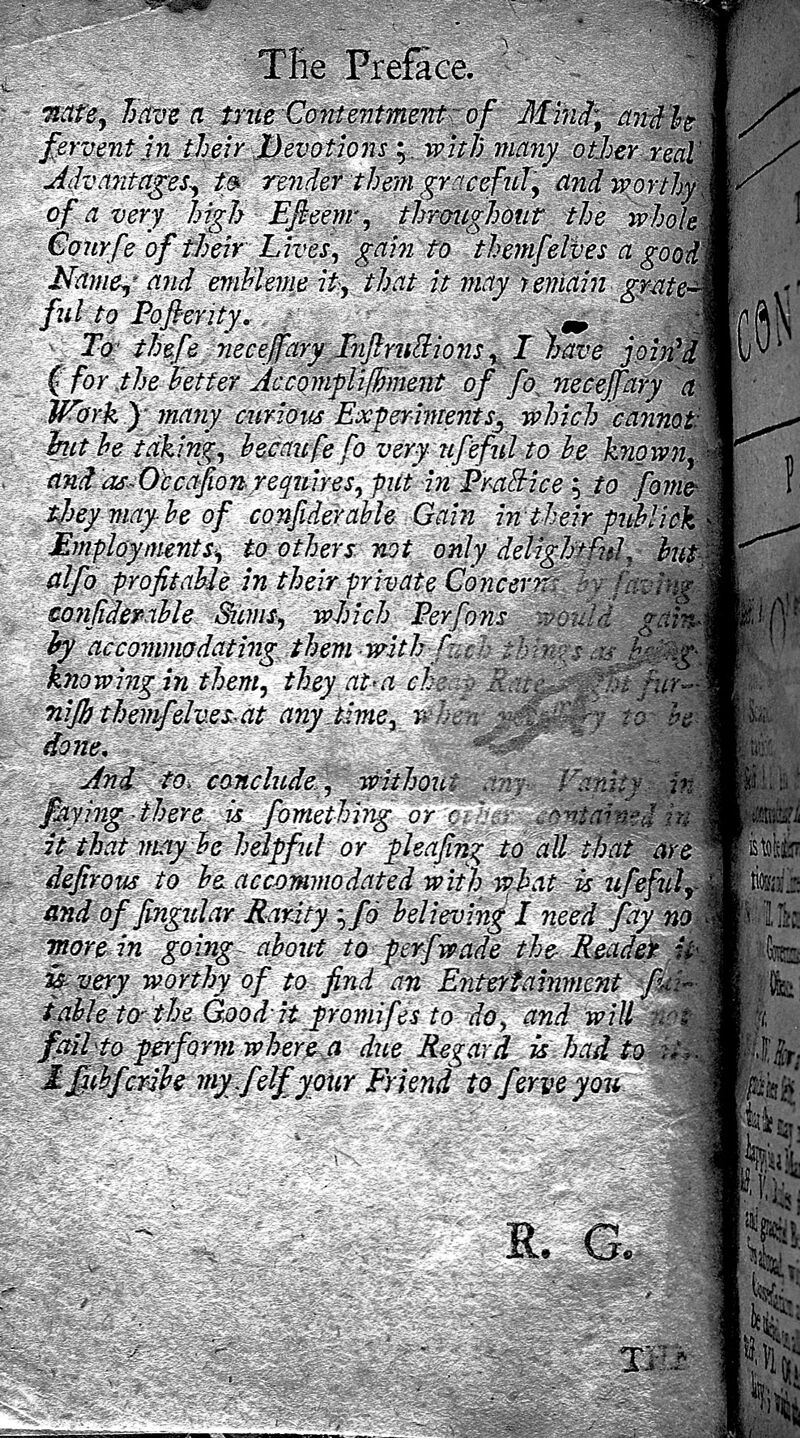 The Preface.
nate, have a true Contentment of Mind, and be
fervent in their Devotions; with many other real
Advantages, to render them graceful, and worthy
of a very high Eſteem, throughout the whole
Courſe of their Lives, gain to themſelves a good
Name, and embleme it, that it may remain grate-
ful to Poſterity.
To theſe neceſſary Inſtructions, I have join'd
(for the better Accompliſhment of ſo neceſſary a
Work) many curious Experiments, which cannot
but be taking, becauſe ſo very uſeful to be known,
and as Occaſion requires, put in Practice; to ſome
they may be of conſiderable Gain in their publick
Employments, to others not only delightful, but
alſo profitable in their private Concerns, by ſaving
conſiderable Sums, which Perſons would gain
by accommodating them with ſuch things as being
knowing in them, they at a cheap Rate might fur-
niſh themſelves at any time, when neceſſary to be
done.
And to conclude, without any Vanity in
ſaying there is ſomething or other contained in
it that may be helpful or pleaſing to all that are
deſirous to be accommodated with what is uſeful,
and of ſingular Rarity; ſo believing I need ſay no
more in going about to perſwade the Reader it
is very worthy of to find an Entertainment ſui-
table to the Good it promiſes to do, and will not
fail to perform where a due Regard is had to it.
I ſubſcribe my ſelf your Friend to ſerve you
R. G.
THE
CON
P